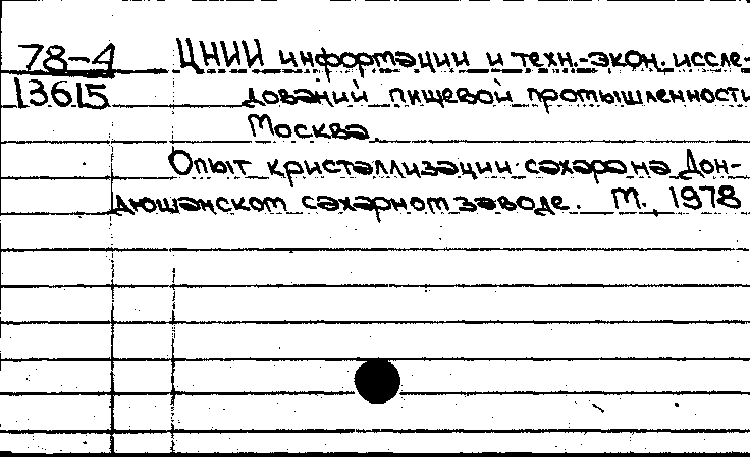 78-4 ЦНИИ информации и техн.-экон. иссле-
13615 дований пищевой промышленности
Москва.
Опыт кристаллизации сахара на Дон-
дюшанском сахарном заводе. М., 1978